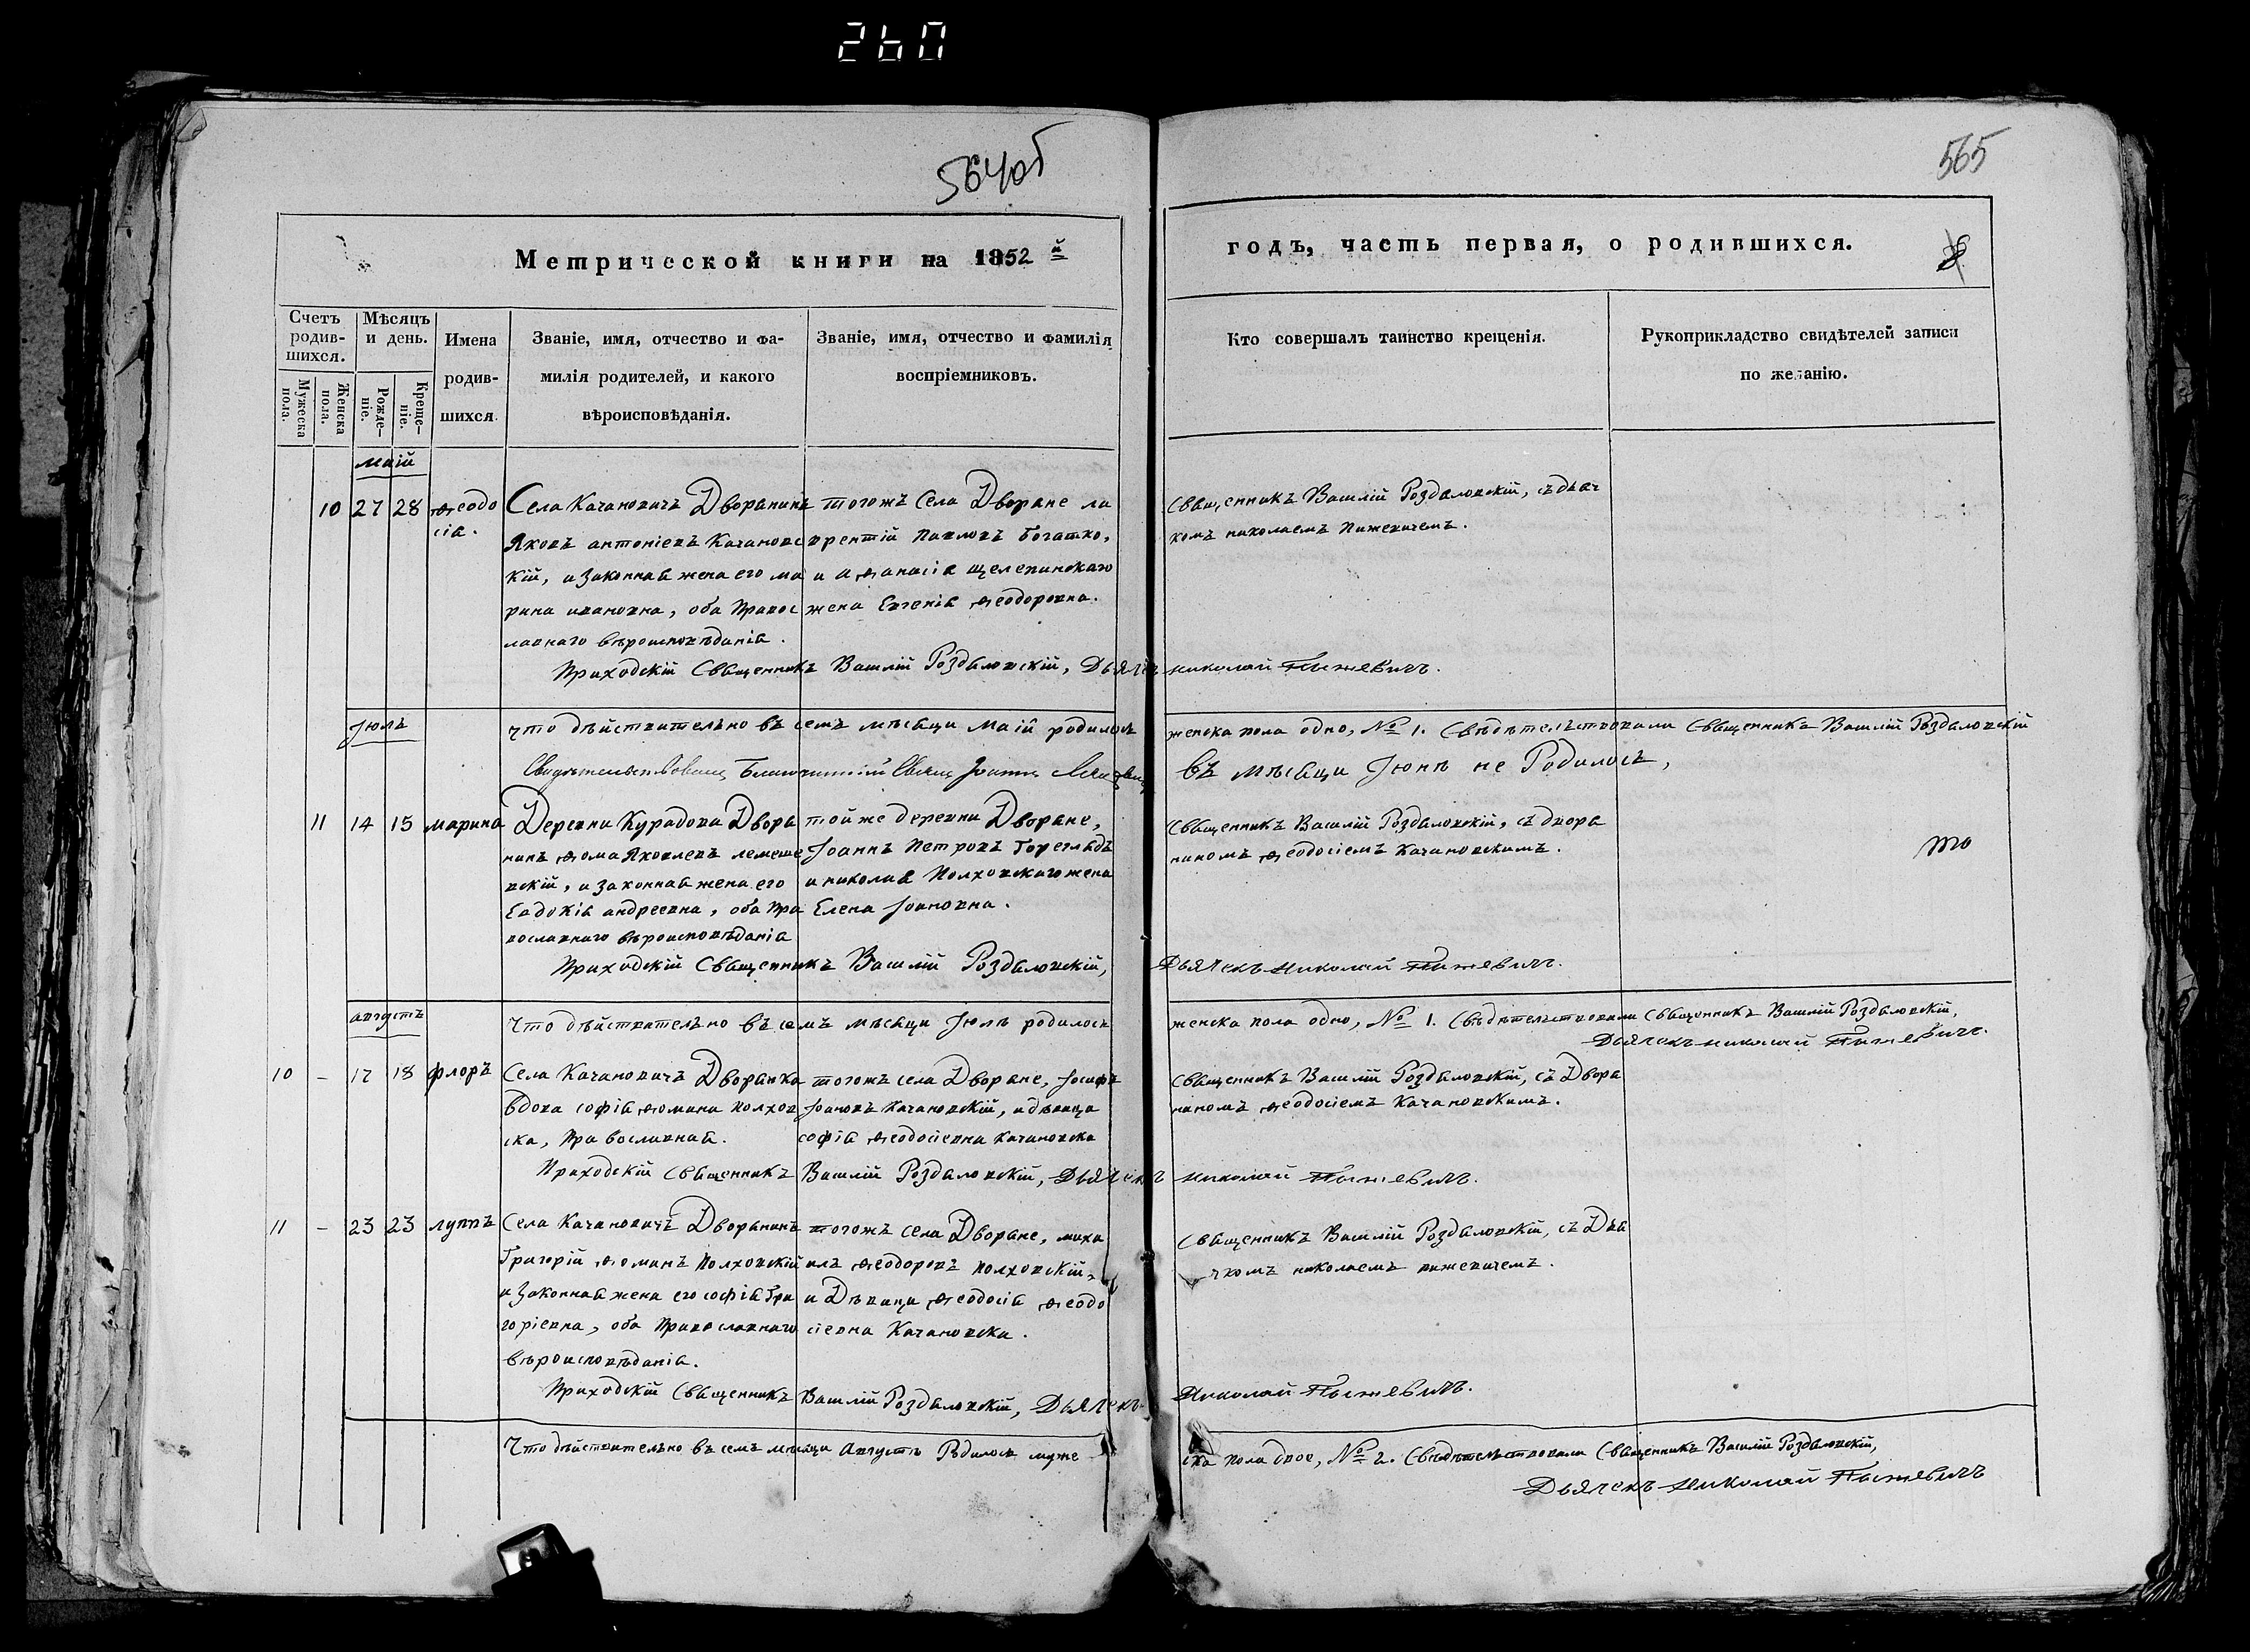 260
564об
565
Метрической книги на 1852й
годъ, часть первая, о родившихся.
8
Счетъ родив-шихся.
Мужеска пола.
Женска пола.
Мѣсяцъ и день.
Рожде-ніе.
Креще-ніе.
Имена
родив-
шихся.
Званіе, имя, отчество и фа-
милія родителей, и какого
вѣроисповѣданія.
Званіе, имя, отчество и фамилія
воспріемниковъ.
Кто совершалъ таинство крещенія.
Рукоприкладство свидѣтелей записи
по желанію.
маій
10 27 28
Ѳеодо
сіа.
Села Качановичъ Дворанинъ
Яковъ антоніевъ Качановс
кій, и законнаа жена его ма
рина ивановна, оба Правос
лавнаго вѣроисповѣданіа.
тогожъ Села Дворане ла
врентій Павловъ Богатко,
и аѳанасіа щелепинскаго
жена Евгеніа Ѳеодоровна.
Сващенникъ Василій Роздаловскій, съ дьач
комъ николаемъ Пижевичемъ.
Приходскій Сващенникъ Василій Роздаловскій, Дьячекъ николай Пыжевичъ.
Іюль
что дѣйствительно въ семъ мѣсаци Маій родилось женска пола одно, № 1. Свѣдѣтельствовали Сващенникъ Василій Роздаловскій
въ мѣсаци Іюнь не Родилось,
11 14 15
марина
Деревни Курадова Двора
нинъ Ѳома Яковлевъ лемеше
вскій, и законнаа жена его
Евдокіа андреевна, оба Пра
вославнаго вѣроисповѣданіа
той же деревни Дворане,
Іоаннъ Петровъ Горегладъ
и николаа Полховскаго жена
Елена Іоановна.
Сващенникъ Василій Роздаловскій, съ двора
ниномъ Ѳеодосіемъ Качановскимъ.
Приходскій Сващенникъ Василій Роздаловскій, Дьячекъ Николай Пижевичъ.
августъ
Что дѣйствительно въ семъ мѣсаци Іюль родилось женска пола одно, № 1. Свѣдѣтельствовали Сващенникъ Василій Роздаловскій,
Дьячекъ николай Пижевичъ.
10 – 17 18
флоръ
Села Качановичъ Дворанка
вдова софіа Ѳомина Полхов
ска, Православнаа.
тогожъ села Дворане, Іосифъ
Іоановъ Качановскій, и дѣвица
софіа Ѳеодосіевна Качановска
Сващенникъ Василій Роздаловскій, съ Двора
ниномъ Ѳеодосіемъ Качановскимъ.
Приходскій Сващенникъ Василій Роздаловскій, Дьячекъ николай Пыжевичъ.
11 – 23 23
луппъ
Села Качановичъ Дворанинъ
Григорій Ѳоминъ Полховскій
и законнаа жена его софіа Гри
горіевна, оба Православнаго
вѣроисповѣданіа.
тогожъ села Дворане, миха
илъ Ѳеодоровъ Полховскій,
и Дѣвица Ѳеодосіа Ѳеодо
сіевна Качановска.
Сващенникъ Василій Роздаловскій, съ Дьа
чкомъ николаемъ пижевичемъ.
Приходскій Сващенникъ Василій Роздаловскій, Дьячекъ Николай Пыжевичъ.
Что дѣйствительно въ семъ мѣсаци Августъ Родилось муже
ска пола двое, № 2. Свѣдѣтельствовали Сващенникъ Василій Роздаловскій,
Дьячекъ Николай Пыжевичъ